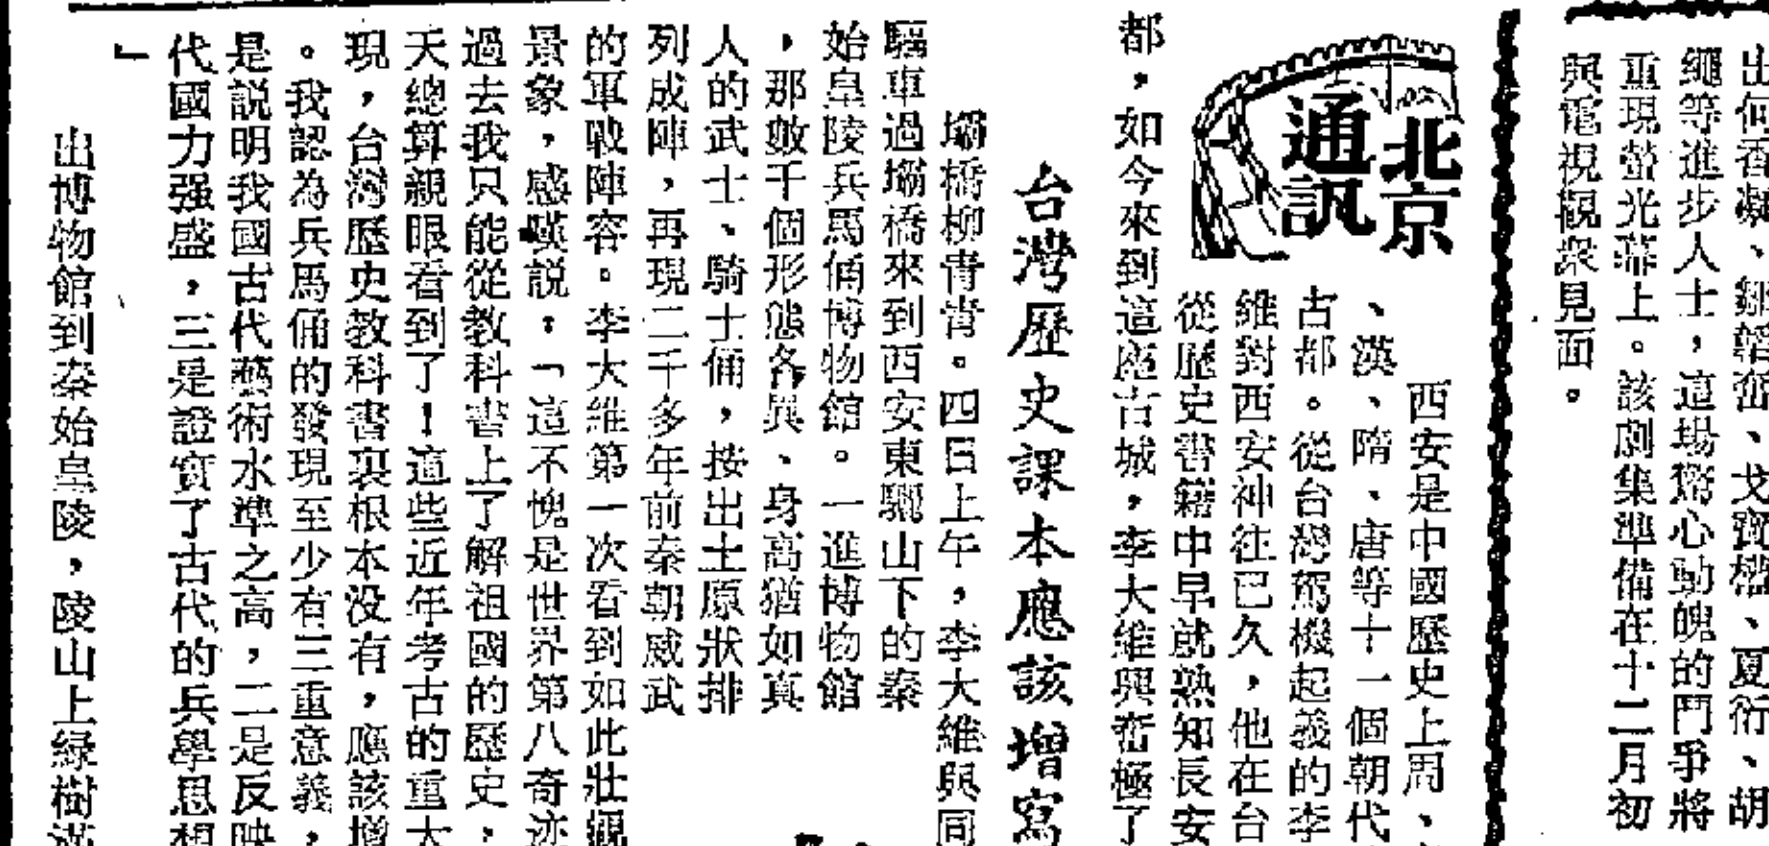 出何香凝、鄒韜奮、戈寶權、夏衍、胡
繩等進步人士，這場驚心動魄的鬥爭將
重現螢光幕上。該劇集準備在十二月初
與電視觀衆見面。
北京
通訊
西安是中國歷史上周、
、漢、隋、唐等十一個朝代
古都。從台灣駕機起義的李
維對西安神往已久，他在台
從歷史書籍中早就熟知長安
都，如今來到這座古城，李大維興奮極了
台灣歷史課本應該增寫
灞橋柳青青。四日上午，李大維與同
驅車過灞橋來到西安東驪山下的秦
始皇陵兵馬俑博物館。一進博物館
，那數千個形態各異、身高猶如真
人的武士、騎士俑，按出土原狀排
列成陣，再現二千多年前秦朝威武
的軍戰陣容。李大維第一次看到如此壯觀
景象，感嘆説：「這不愧是世界第八奇迹
過去我只能從教科書上了解祖國的歷史，
天總算親眼看到了！這些近年考古的重大
現，台灣歷史教科書裏根本没有，應該增
。我認為兵馬俑的發現至少有三重意義，
是説明我國古代藝術水準之高，二是反映
代國力强盛，三是證實了古代的兵學思想
」
出博物館到秦始皇陵，陵山上緑樹滿